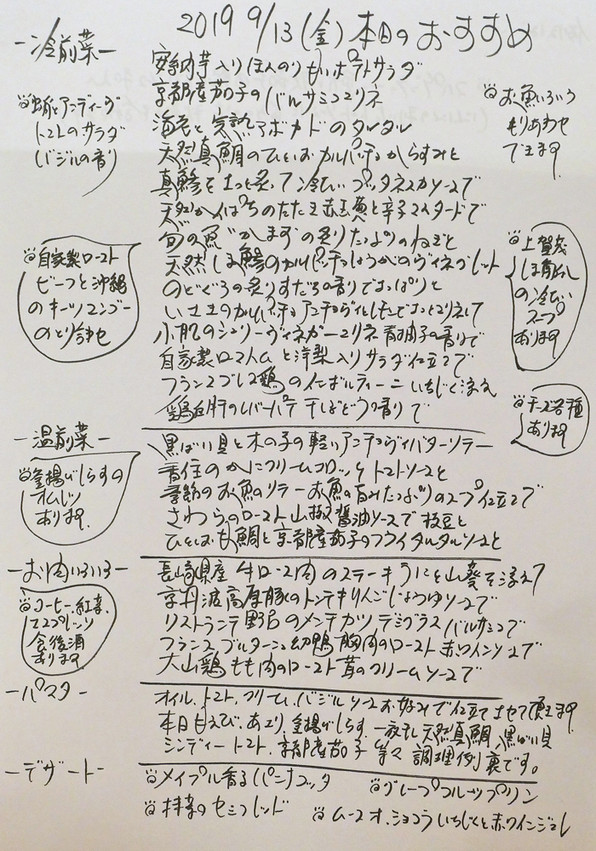 2019 9/13(金)本日のおすすめ
-冷前菜-
安納芋入りほんのり甘いポテトサラダ
京都産茄子のバルサミコマリネ
海老と完熟アボカドのタルタル
天然真鯛のひとしおカルパッチョからすみと
真鯵をさっと炙って冷たいプッタネスカソースで
天然かんぱちのたたき赤玉葱と辛子マスタードで
旬の魚"かます"の炙りたっぷりのねぎと
天然しま鯵のカルパッチョしょうがのヴィネグレット
のどぐろの炙りすだちの香りでさっぱりと
いさきのカルパッチョアンチョヴィレモンでさっとマリネして
小肌のシェリーヴィネガーマリネ青柚子の香りで
自家製ロースハムと洋梨入りサラダ仕立てで
フランスブレス鶏のインボルティーニいちじく添え
鶏白肝のレバーパテ干しぶどうの香りで
アンティーブ
トマトのサラダ
バジルの香り
自家製ロースト
ビーフと沖縄
のキーツマンゴー
のとり合わせ
お魚いろいろ
もりあわせ
できます
上賀茂
の冷たい
スープ
あります
チーズ各種
あります
-温前菜-
黒ばい貝と木の子の軽いアンチョヴィバターソテー
香住のかにクリームコロッケトマトソースと
季節のお魚のソテーお魚の旨みたっぷりのスープ仕立てで
さわらのロースト山椒醤油ソースで枝豆と
ひとしお鯛と京都産茄子のフライタルタルソースと
釜揚げしらすの
オムレツ
あります
-お肉いろいろ-
長崎県産牛ロース肉のステーキうにと山葵を添えて
京丹波高原豚のトンテキりんごしょうゆソースで
リストランテ野呂のメンチカツデミグラスバルサミコで
フランスブルターニュ幼鴨胸肉のロースト赤ワインソースで
大山鶏もも肉のロースト茸のクリームソースで
コーヒー、紅茶、
エスプレッソ
食後酒
あります
-パスタ-
オイル、トマト、クリーム、バジルソースお好みで仕立てさせて頂きます
本日甘えび、あさり、釜揚げしらす、一夜干し天然真鯛、黒ばい貝
シンディートマト、京都産茄子等々調理例裏です。
-デザート-
メイプル香るパンナコッタ
グレープフルーツプリン
抹茶のセミフレッド
ムースオ.ショコラいちじくと赤ワインジュレ